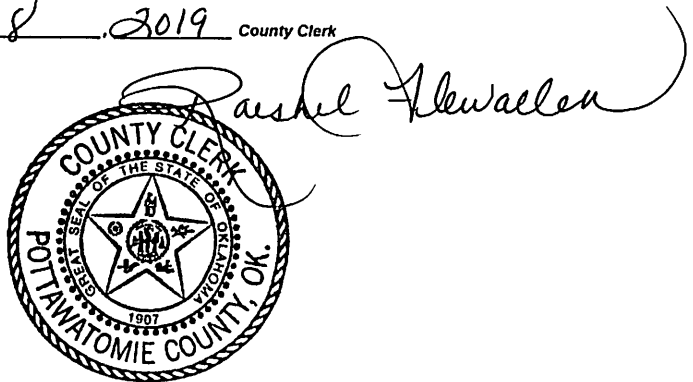 8, 2019 County Clerk
Raeshel Flewallen
COUNTY CLERK
GREAT SEAL OF THE STATE OF OKLAHOMA
1907
POTTAWATOMIE COUNTY, OK.